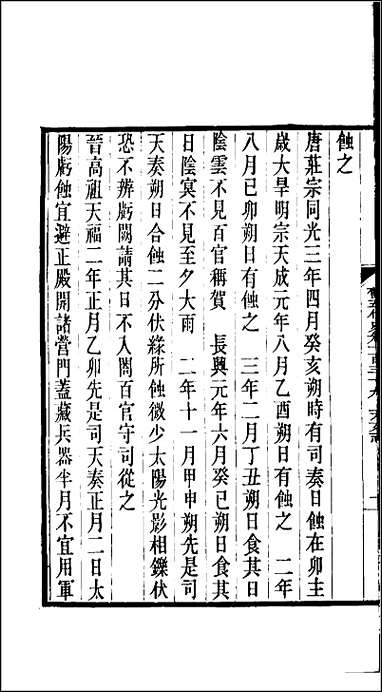 蝕之
唐莊宗同光三年四月癸亥朔時有司奏日蝕在卯主
歲大旱明宗天成元年八月乙酉朔日有蝕之　二年
八月己卯朔日有蝕之　三年二月丁丑朔日食其日
陰雲不見百官稱賀　長興元年六月癸巳朔日食其
日陰冥不見至夕大雨　二年十一月甲申朔先是司
天奏朔日合蝕二分伏緣所蝕微少太陽光影相鑠伏
恐不辨虧闕請其日不入閤百官守司從之
晉高祖天福二年正月乙卯先是司天奏正月二日太
陽虧蝕宜避正殿開諸營門蓋藏兵器半月不宜用軍